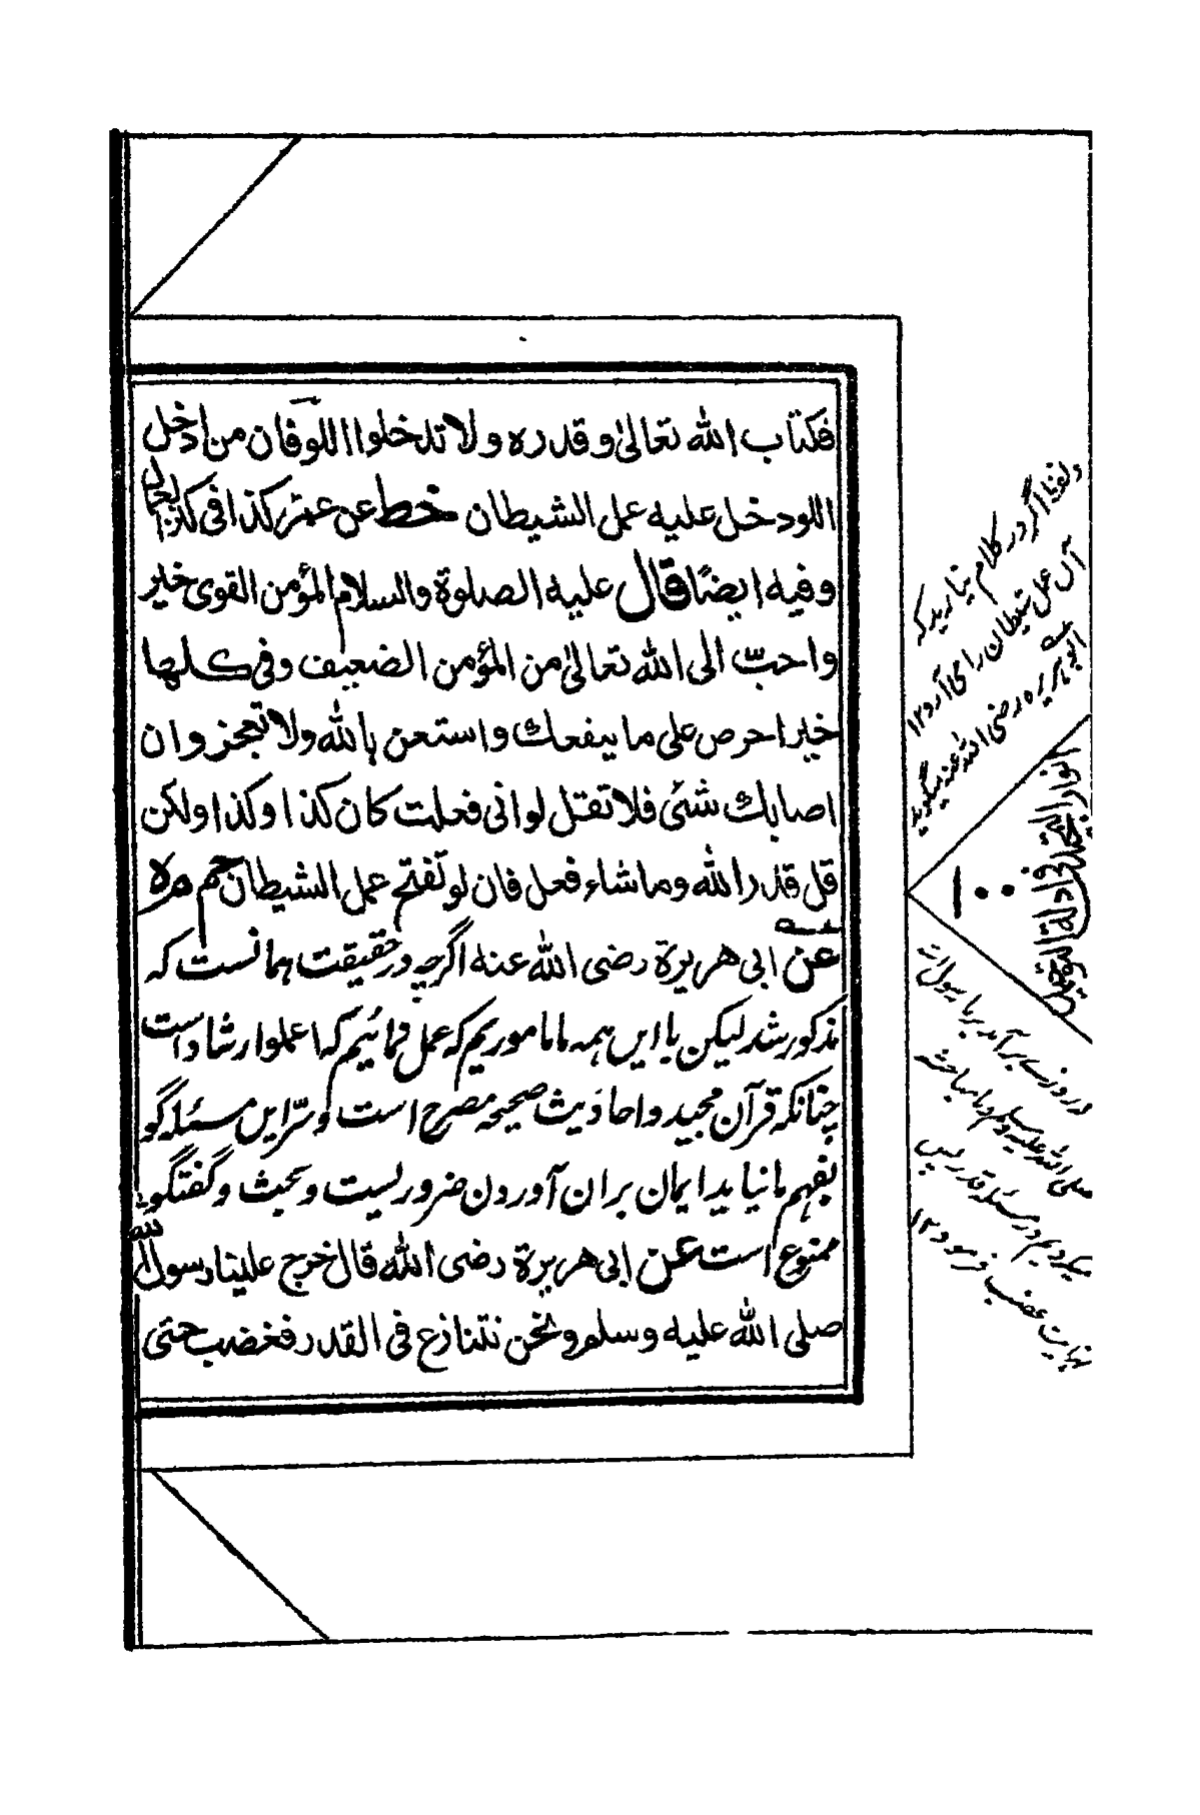 فکتاب الله تعالیٰ و قدره و لا تدخلوا اللوّ فان من ادخل
اللو دخل علیه عمل الشیطان خط عن عمر کذا فی کنز العمال
و فیه ایضًا قال علیه الصلوة والسلام المؤمن القوی خیر
و احبّ الی الله تعالیٰ من المؤمن الضعیف و فی کلها
خیر احرص علی ما ینفعك و استعن بالله ولا تعجز و ان
اصابك شئ فلا تقل لو انی فعلت کان کذا و کذا ولکن
قل قدر الله وما شاء فعل فان لو تفتح عمل الشیطان حم م ه
عن ابی هریرة رضی الله عنه اگرچه در حقیقت همانست که
مذکور شد لیکن با این همه ما ماموریم که عمل نمائیم که اعملوا ارشاد است
چنانکه قرآن مجید و احادیث صحیحه مصرح است و سرّ این مسئله گو
بفهم ما نیاید ایمان بران آوردن ضروریست و بحث و گفتگو
ممنوع است عن ابی هریرة رضی الله قال خرج علینا رسول الله
صلی الله علیه وسلم ونحن نتنازع فی القدر فغضب حتی
ولفظ اگر در کلام نیارید که
آن عمل شیطان را می آرد ۱۲
ابو هریره رضی الله عنه میگوید
۱۰۰
در روزے برآمد بر ما رسول الله
صلی الله علیه وسلم و ما مباحثه
میکردیم در مسئله قدر پس
نهایت غضب فرمود ۱۲